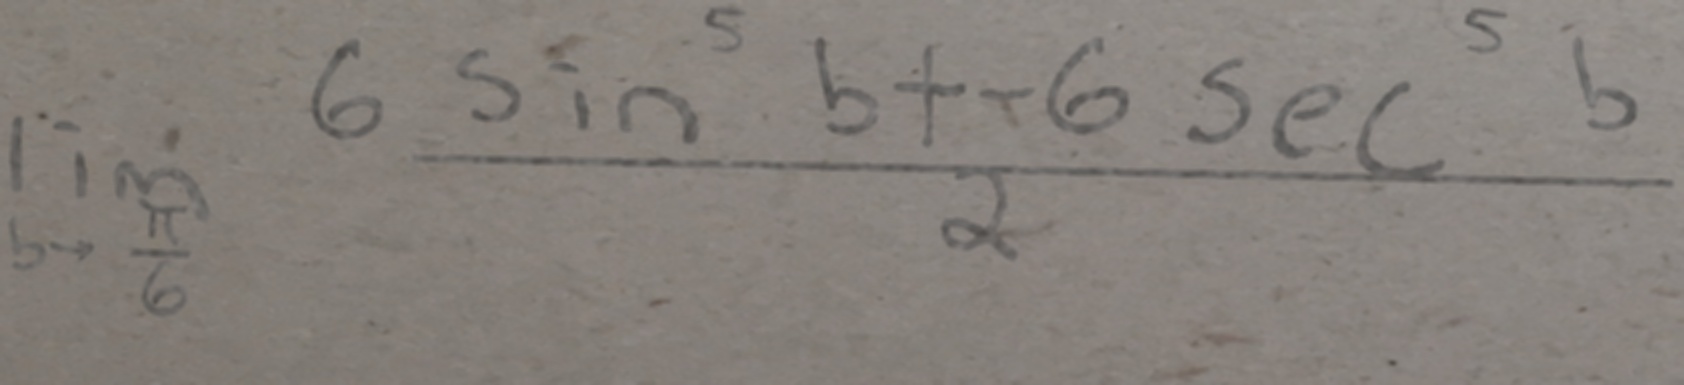 lim b→π/6 (6 sin^5 b + -6 sec^5 b)/2